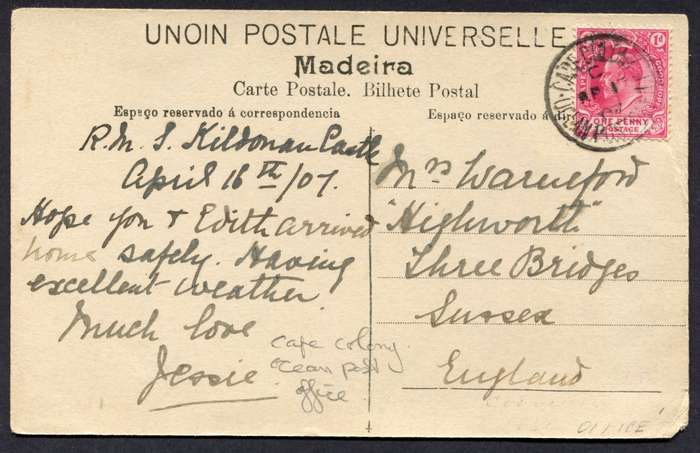 UNOIN POSTALE UNIVERSELLE
Madeira
Carte Postale. Bilhete Postal
Espaço reservado á correspondencia
Espaço reservado á
R.M.S Kildonan Castle
April 16th/07.
Hope you & Edith arrived
home safely. Having
excellent weather
Much love
Jessie
cape colony
ocean post
office
Mrs Warneford
"Highworth"
Three Bridges
Sussex
England
1d
ONE PENNY
POSTAGE
CAPE COLONY
AP 1